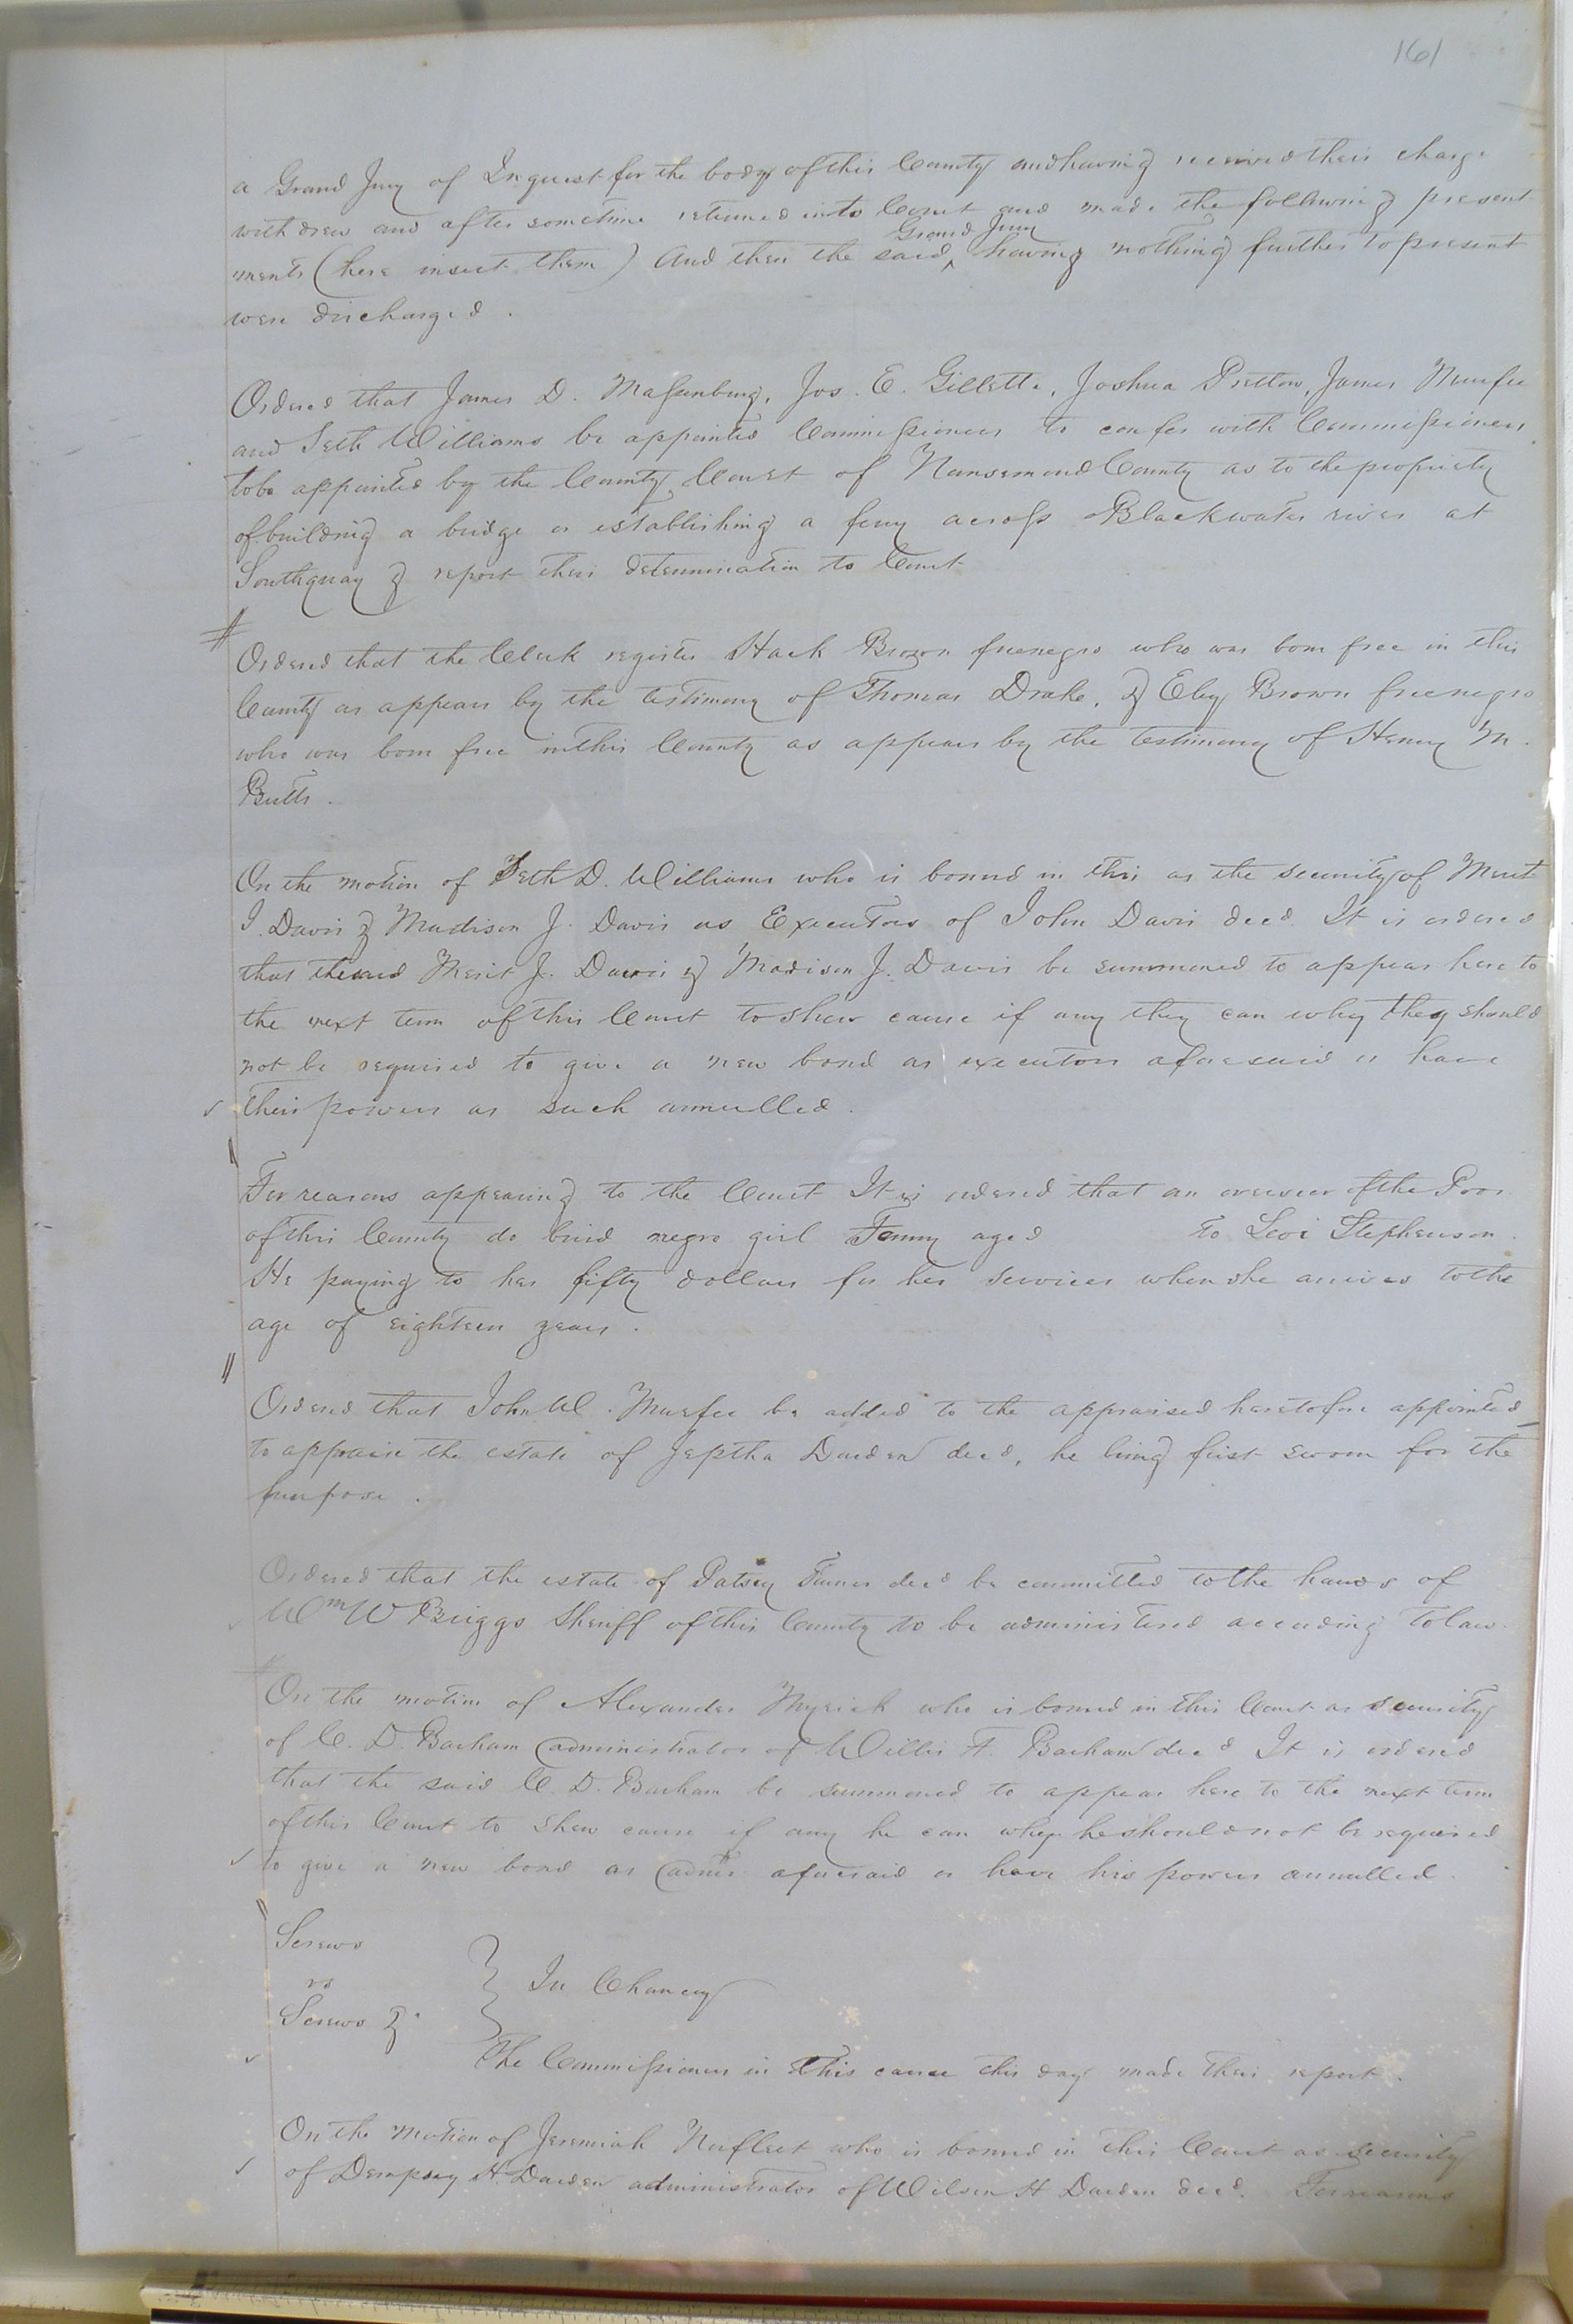 161
a Grand Jury of Inquest for the body of this County and having received their charge
withdrew and after sometime returned into Court and made the following present-
Grand Jury
ments (here insert them) And then the said ^ having nothing further to present
were discharged.
Ordered that James D. Massenburg, Jos. E. Gillette, Joshua Pretlow, James Murfee
and Seth Williams be appointed Commissioners to confer with Commissioners
to be appointed by the County Court of Nansemond County as to the propriety
of building a bridge or establishing a ferry across Blackwater river at
Southquay & report their determination to Court
Ordered that the Clerk register Hack Brown free negro who was born free in this
County as appears by the testimony of Thomas Drake, & Eley Brown free negro
who was born free in this County as appears by the testimony of Henry M.
Butts.
On the motion of Seth D. Williams who is bound in this as the security of Merit
J. Davis & Madison J. Davis as Executors of John Davis decd. It is ordered
that the said Merit J. Davis & Madison J. Davis be summoned to appear here to
the next term of this Court to shew cause if any they can why they should
not be required to give a new bond as executors aforesaid or have
their powers as such annulled.
For reasons appearing to the Court It is ordered that an overseer of the Poor
of this County do bind negro girl Fanny aged to Levi Stephenson.
He paying to her fifty dollars for her services when she arrives to the
age of eighteen years.
Ordered that John W. Murfee be added to the appraised heretofore appointed
to appraise the estate of Jeptha Darden decd, he being first sworn for the
purpose.
Ordered that the estate of Patsey Turner decd be committed to the hands of
Wm W Briggs Sheriff of this County to be administered according to law.
On the motion of Alexander Myrick who is bound in this Court as security
of C. D. Barham administrator of Willis F. Barham decd It is ordered
that the said C. D. Barham be summoned to appear here to the next term
of this Court to shew cause if any he can why he should not be required
to give a new bond as admr aforesaid or have his powers annulled.
Screws
vs
Screws &.
In Chancery
The Commissioners in this cause this day made their report.
On the motion of Jeremiah Norfleet who is bound in this Court as security
of Dempsey H. Darden administrator of Wilson H Darden decd. For reasons